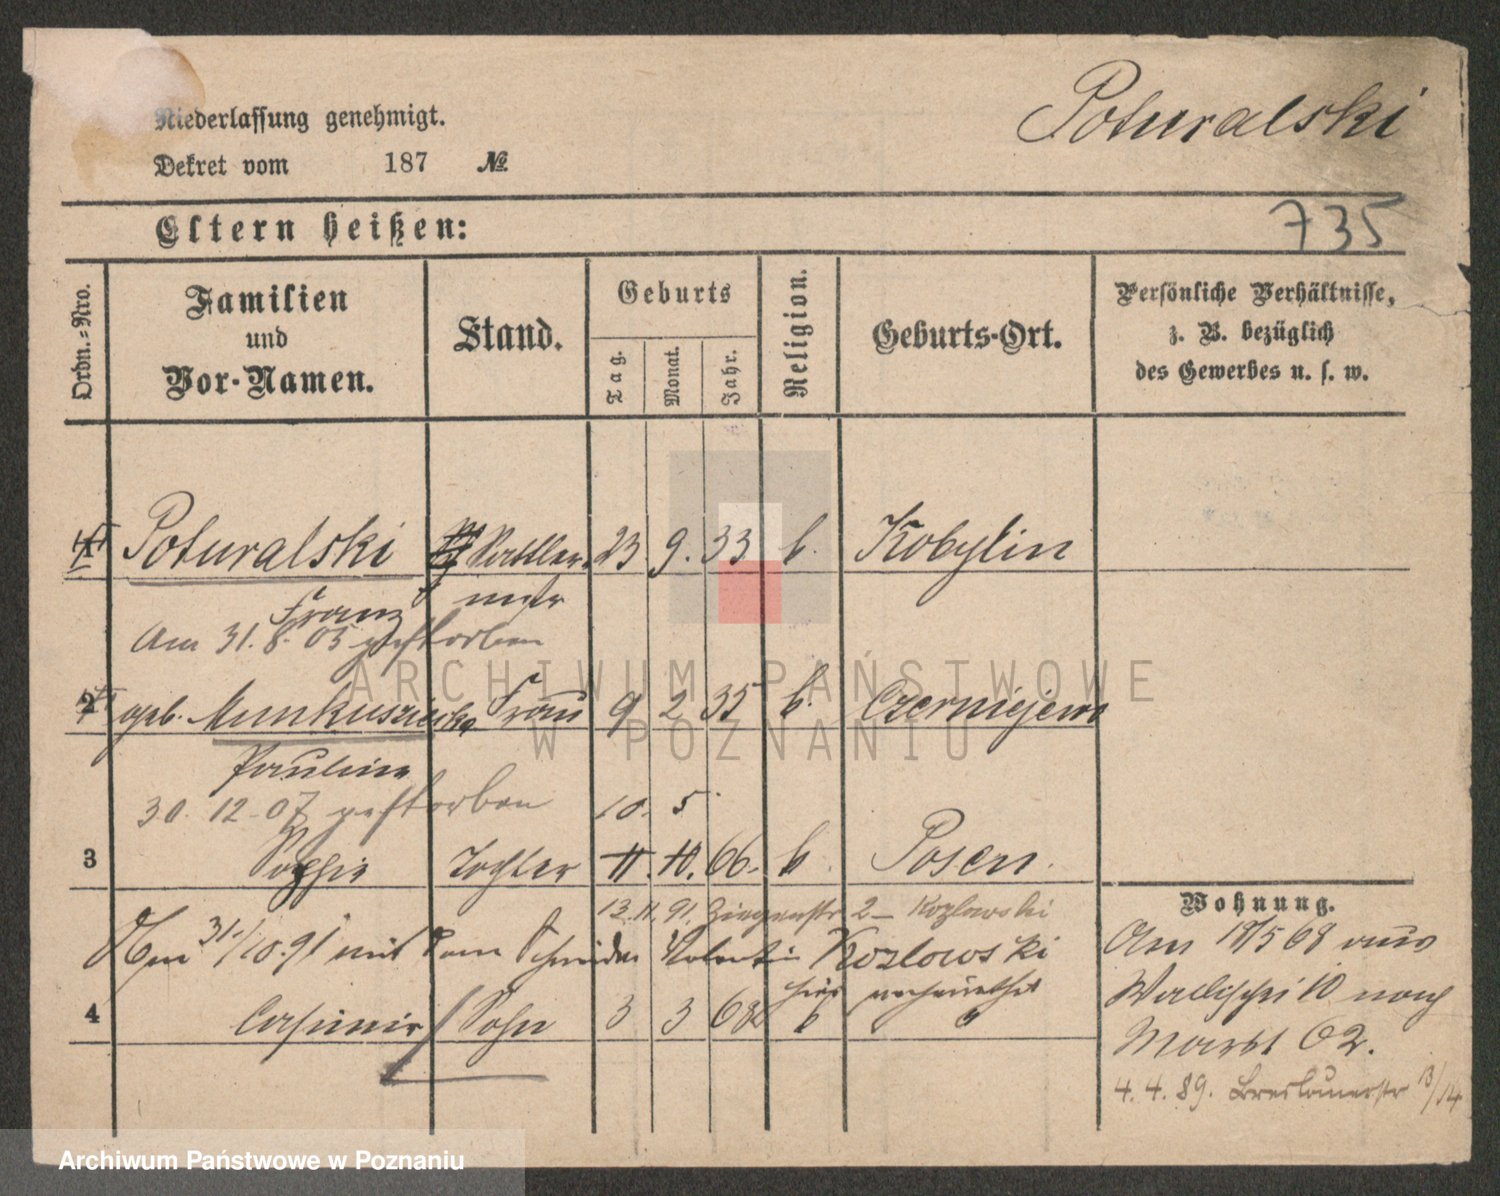 Niederlassung genehmigt.
Dekret vom 187 №
Poturalski
Eltern heißen:
735
Ordn.-Nro.
Familien
und
Vor-Namen.
Stand.
Geburts
Tag.
Monat.
Jahr.
Religion.
Geburts-Ort.
Persönliche Verhältnisse,
z. B. bezüglich
des Gewerbes u. s. w.
1 Poturalski Sattler- 23. 9. 33 k. Kobylin
Franz mstr
Am 31.8.03 gestorben
2 geb. Munkuszieska Frau 9 2 35 k. Czerniejewo
Pauline
30. 12. 07 gestorben 10. 5
3 Sophie Tochter 11. 10. 66. k Posen.
13.11.91. Ziegenstr 2 Kozlowski
Am 31./10.91 mit dem Schneider Valentin Kozlowski
hier verheirathet
4 Casimir Sohn 3 3 68 k "
Wohnung.
Am 18/5 68 aus
Wallischei 10 nach
Markt 62.
4. 4. 89. Breslauerstr 13/14
ARCHIWUM PAŃSTWOWE
W POZNANIU
Archiwum Państwowe w Poznaniu